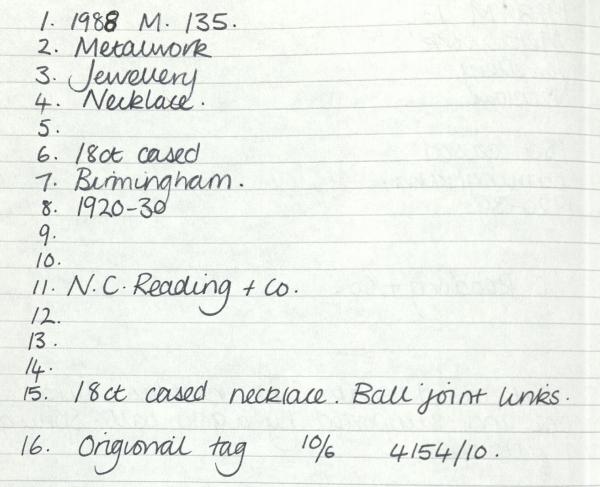 1. 1988 M. 135.
2. Metalwork
3. Jewellery
4. Necklace.
5.
6. 18ct cased
7. Birmingham.
8. 1920-30
9.
10.
11. N.C. Reading + Co.
12.
13.
14.
15. 18ct cased necklace. Ball joint links.
16. Origional tag 10/6 4154/10.